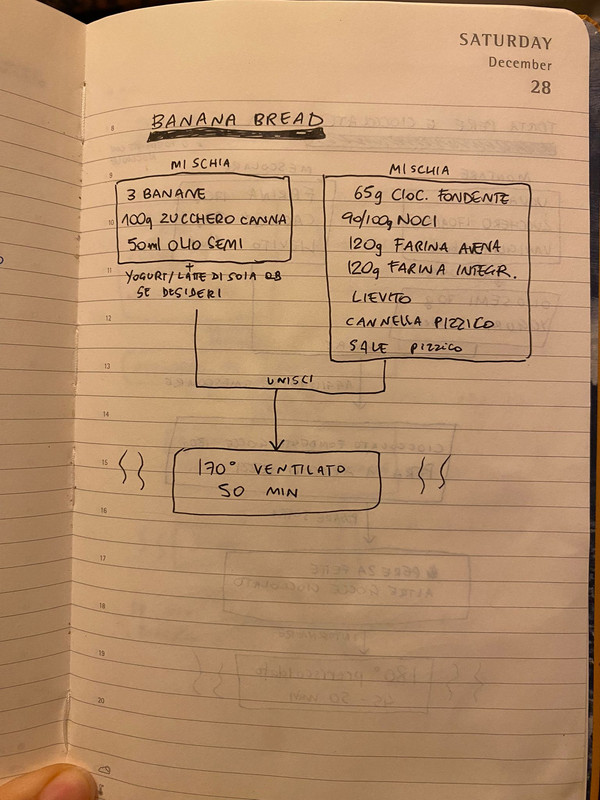 SATURDAY
December
28
BANANA BREAD
MISCHIA
3 BANANE
100g ZUCCHERO CANNA
50ml OLIO SEMI
+
YOGURT/LATTE DI SOIA
SE DESIDERI
MISCHIA
65g CIOC. FONDENTE
90/100g NOCI
120g FARINA AVENA
120g FARINA INTEGR.
LIEVITO
CANNELLA PIZZICO
SALE PIZZICO
UNISCI
170° VENTILATO
50 MIN
8
9
10
11
12
13
14
15
16
17
18
19
20